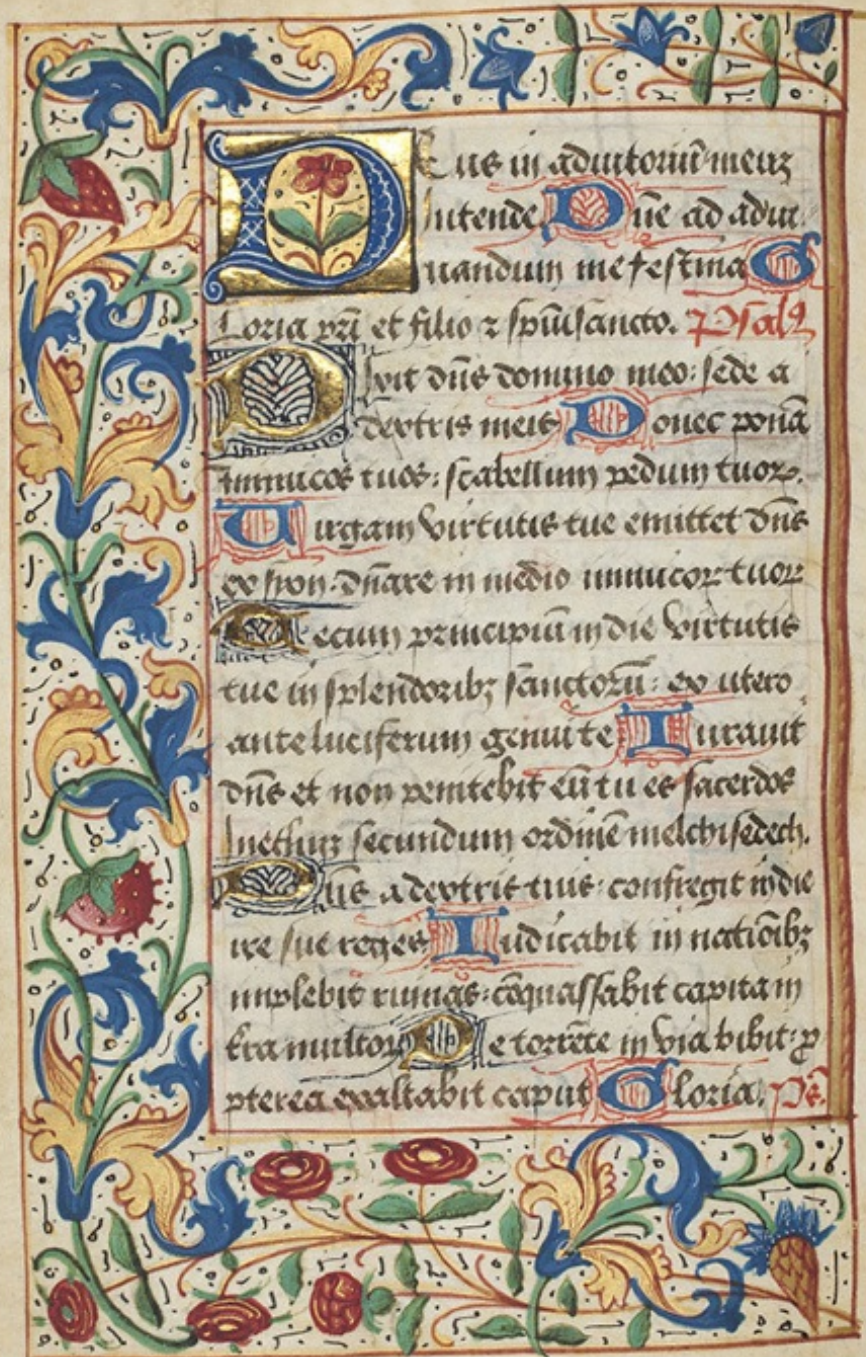 Deus in adiutoriū meuz
Intende Dn̄e ad adiu
uandum me festina G
loria pr̄i et filio ⁊ spūi sancto. Psalꝰ
Dixit dn̄s domino meo: sede a
dextris meis Donec ponā
inimicos tuos: scabellum pedum tuoꝝ.
Uirgam virtutis tue emittet dn̄s
ex syon: dn̄are in medio inimicoꝝ tuoꝝ
Tecum principiū in die virtutis
tue in splendoribꝫ sanctorū: ex utero
ante luciferum genui te Iurauit
dn̄s et non penitebit eū tu es sacerdos
Ineternuz secundum ordinē melchisedech.
Dn̄s a dextris tuis: confregit in die
ire sue reges Iudicabit in natiōibꝫ
implebit ruinas: cōquassabit capita in
t̄ra multoꝝ De torrēte in via bibit: ꝓ
pterea exaltabit caput Gloria. Ps̄.